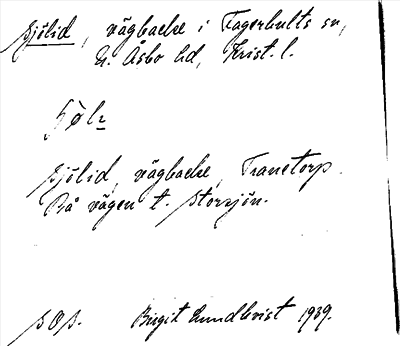 Sjölid, vägbacke i Fagerhults sn,
N. Åsbo hd, Krist. l.
Sjölid, vägbacke, Tranetorp.
På vägen t. Storsjön.
Birgit Lundkvist 1939.